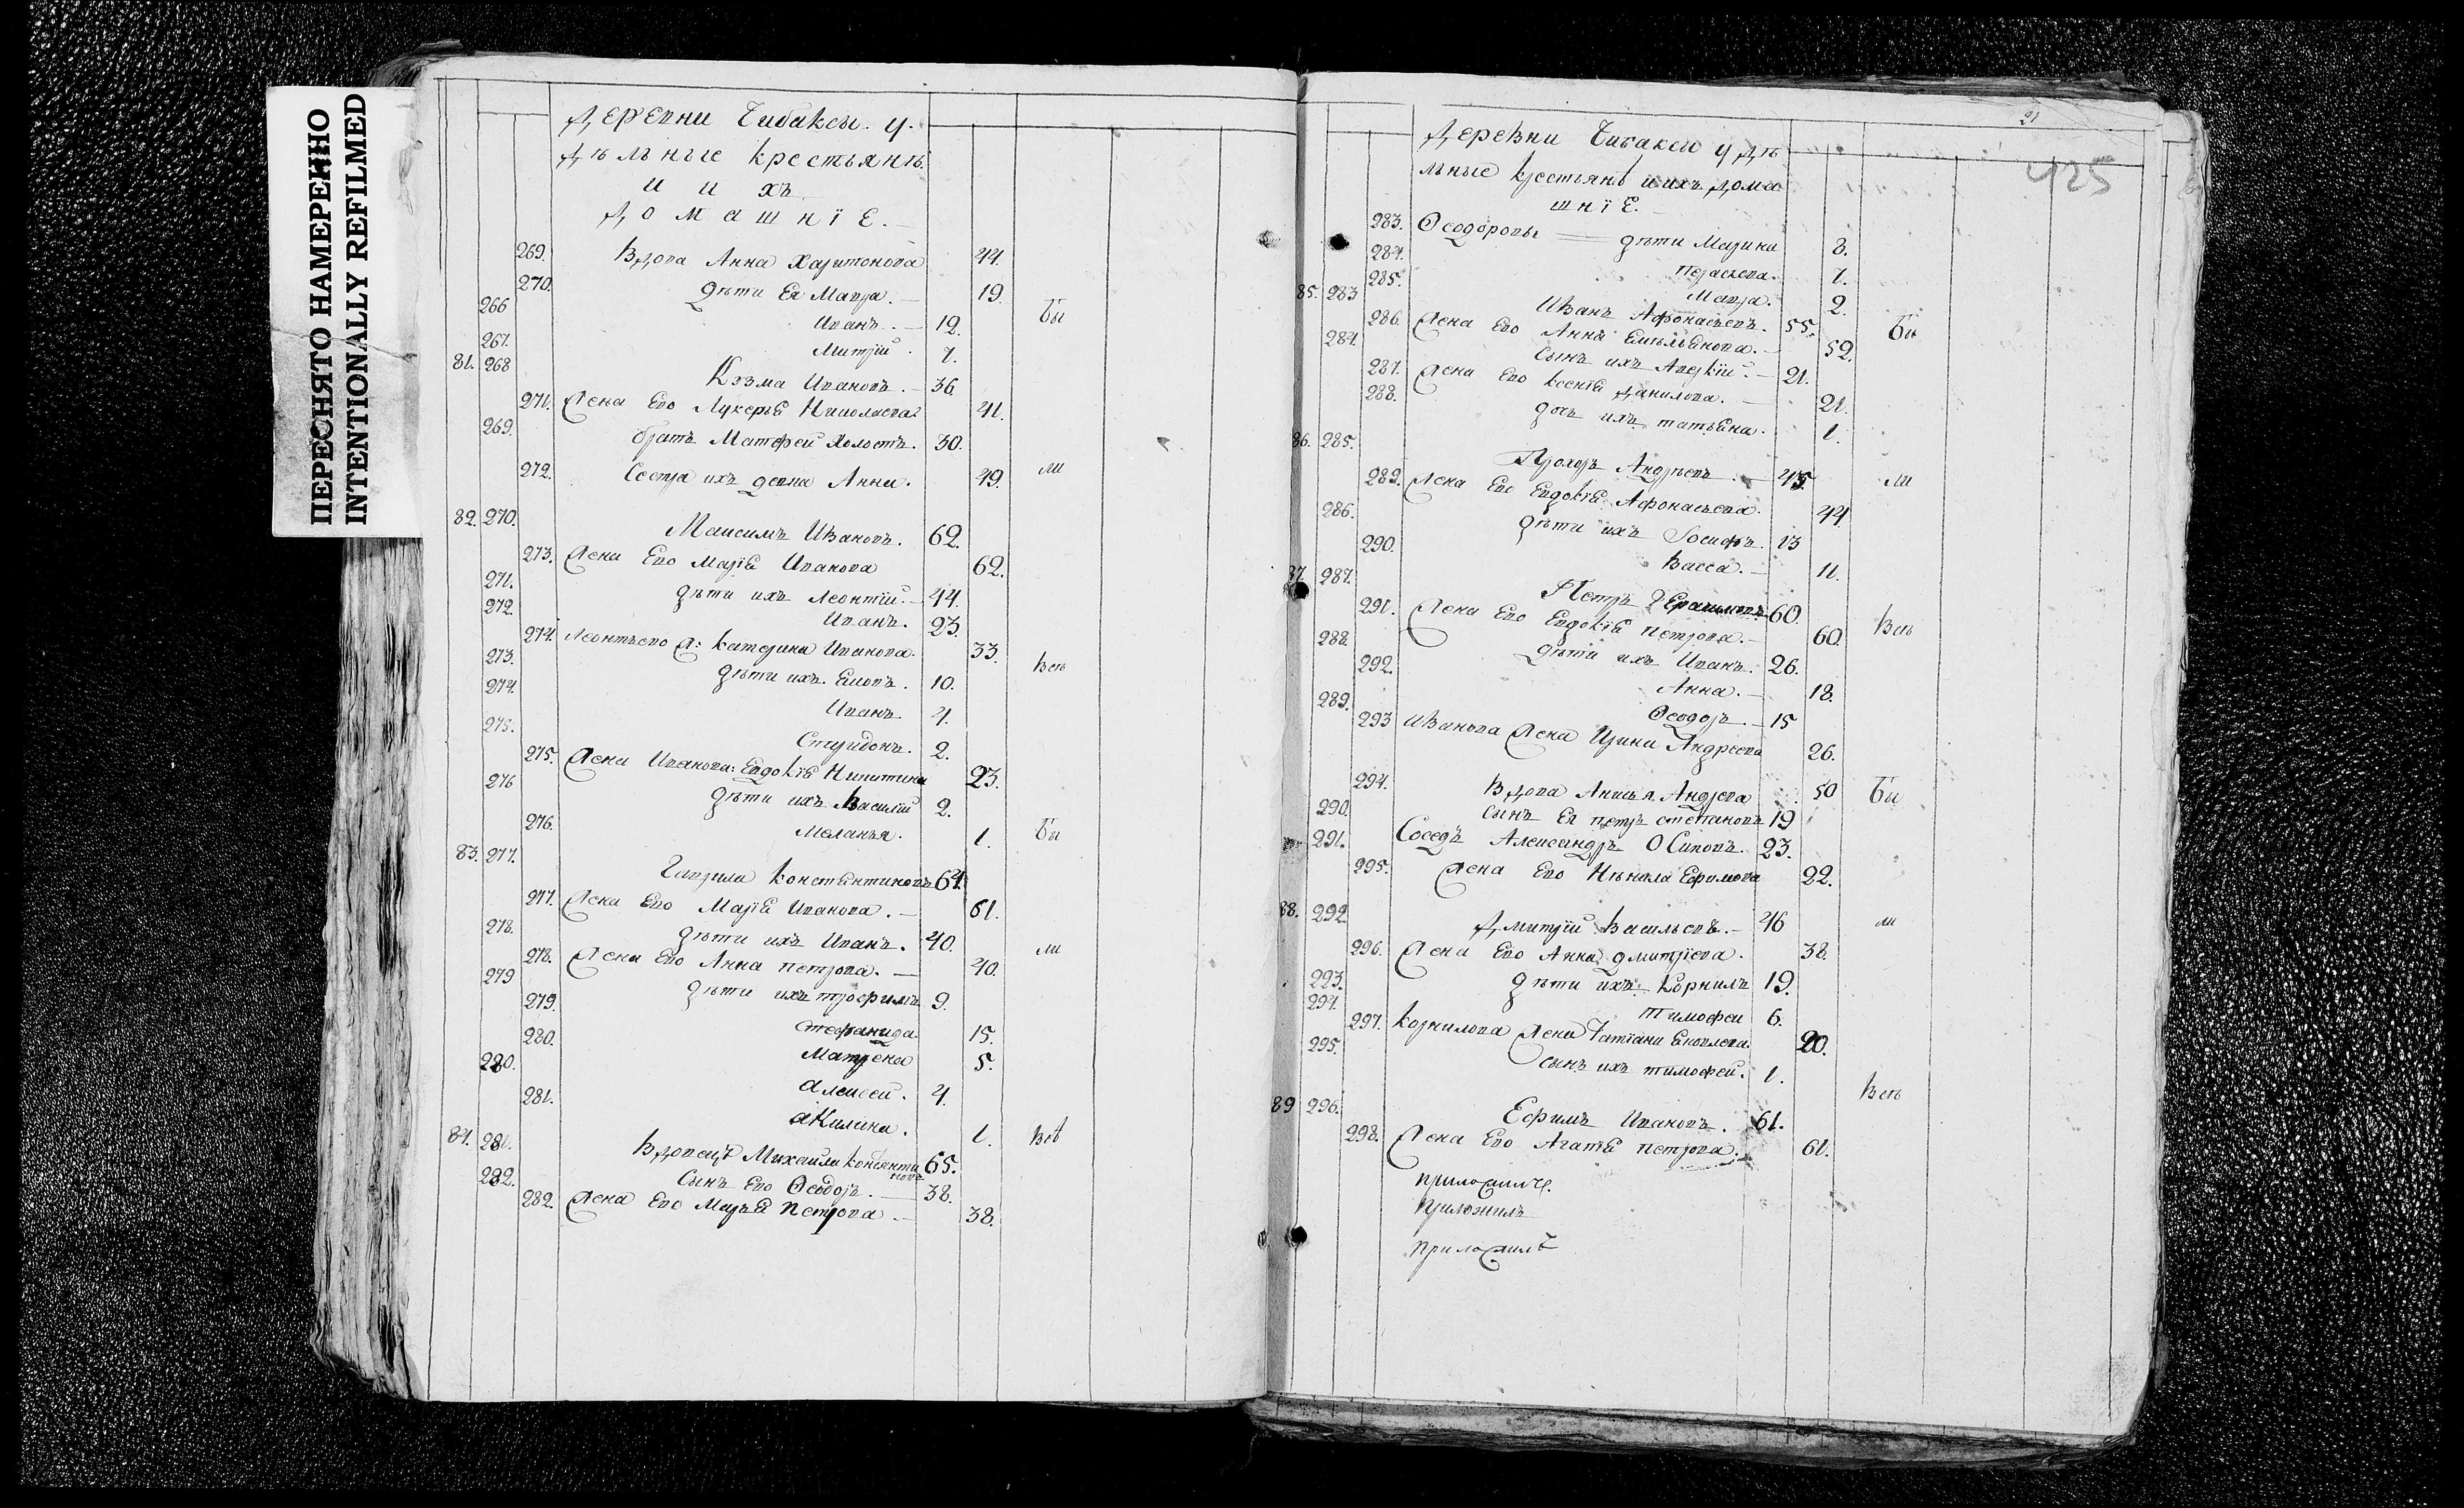 ПЕРЕСНЯТО НАМЕРЕННО
INTENTIONALLY REFILMED
Деревни Чибаксы. у
дѣльные крестьянѣ
и ихъ
домашнїе. —
269. Вдова Анна Харитонова 44.
270. дѣти Ея Мавра. — 19.
266 Иванъ. — 12. бы
267. Митрiй. 7.
81. 268 Козма Ивановъ. — 36.
271. Жена Его Лукерья Николаева 41.
269. братъ Матфей холостъ. 30.
272. Сестра ихъ девка Анна. 49. ли
82. 270. Максимъ Ивановъ. 62.
273. Жена Его Марїя Иванова 62.
271. дѣти ихъ Леонтїй. — 44.
272. Иванъ. 23.
274. Леонтьево ж: катерина Иванова. 33.
273. дѣти ихъ 10. всѣ
274. Иванъ 4.
275. Спиридонъ. 2.
275. Жена Иванова: Евдокїя Никитина 23.
276 дѣти ихъ Василїй 2.
276. Меланья. 1. бы
83. 277. Гаврила Константиновъ 64.
277. Жена Его Марїя Иванова. — 61.
278. дѣти ихъ Иванъ. 40.
278. Жена Его Анна петрова. — 40. ли
279 дѣти ихъ трофимъ 9.
279. стефанида. 15.
280. Матрена 5.
280. алексей. 4.
281. акилина. 1.
84. 281. Вдовецъ Михаила константи 65. всѣ
новъ
282. Сынъ Его Ѳеодоръ. — 38.
282. Жена Его Марья петрова — 38.
21
425
Деревни Чибаксы удѣ
льные крестьянѣ и ихъ дома
шнїе. —
283. Ѳеодоровы — дѣти Марина 8.
284. параскева. 7.
285. Мавра. 2.
85. 283 Иванъ Афонасьевъ. 55. бы
286. Жена Его Анна Емельянова. — 52.
284. сынъ ихъ Аверкiй. — 21.
287. Жена Его ксенїя данилова. — 21.
288. дочь ихъ татьяна. 1.
86. 285. Прохоръ Андрѣевъ. — 45. ли
289. Жена Его Евдокїя Афонасьева. 44
286. дѣти ихъ Iосифъ. 13
290. Васса. — 11.
87. 287. Петръ 60.
291. Жена Его Евдокїя петрова. — 60. всѣ
288. дѣти ихъ Иванъ. 26.
292. Анна. — 18.
289. Ѳеодоръ. — 15
293 Иванова Жена Ирина Андреева 26.
294. Вдова Анисья Андреева 50 бы
290. сынъ Ея петръ степановъ 19
291. Соседъ Александръ Осиповъ. 23.
295. Жена Его Ненила Ефимова 22.
88. 292. Дмитрїй Васильевъ. — 46 ли
296. Жена Его Анна дмитрїева. 38.
293. дѣти ихъ Корнилъ 19.
294. тимофей 6.
297. корнилова Жена татїана 20.
295. сынъ ихъ тимофей. 1.
89 296. Ефимъ Ивановъ. 61. всѣ
298. Жена Его Агатья петрова. 61.
приложилъ.
приложилъ
приложилъ